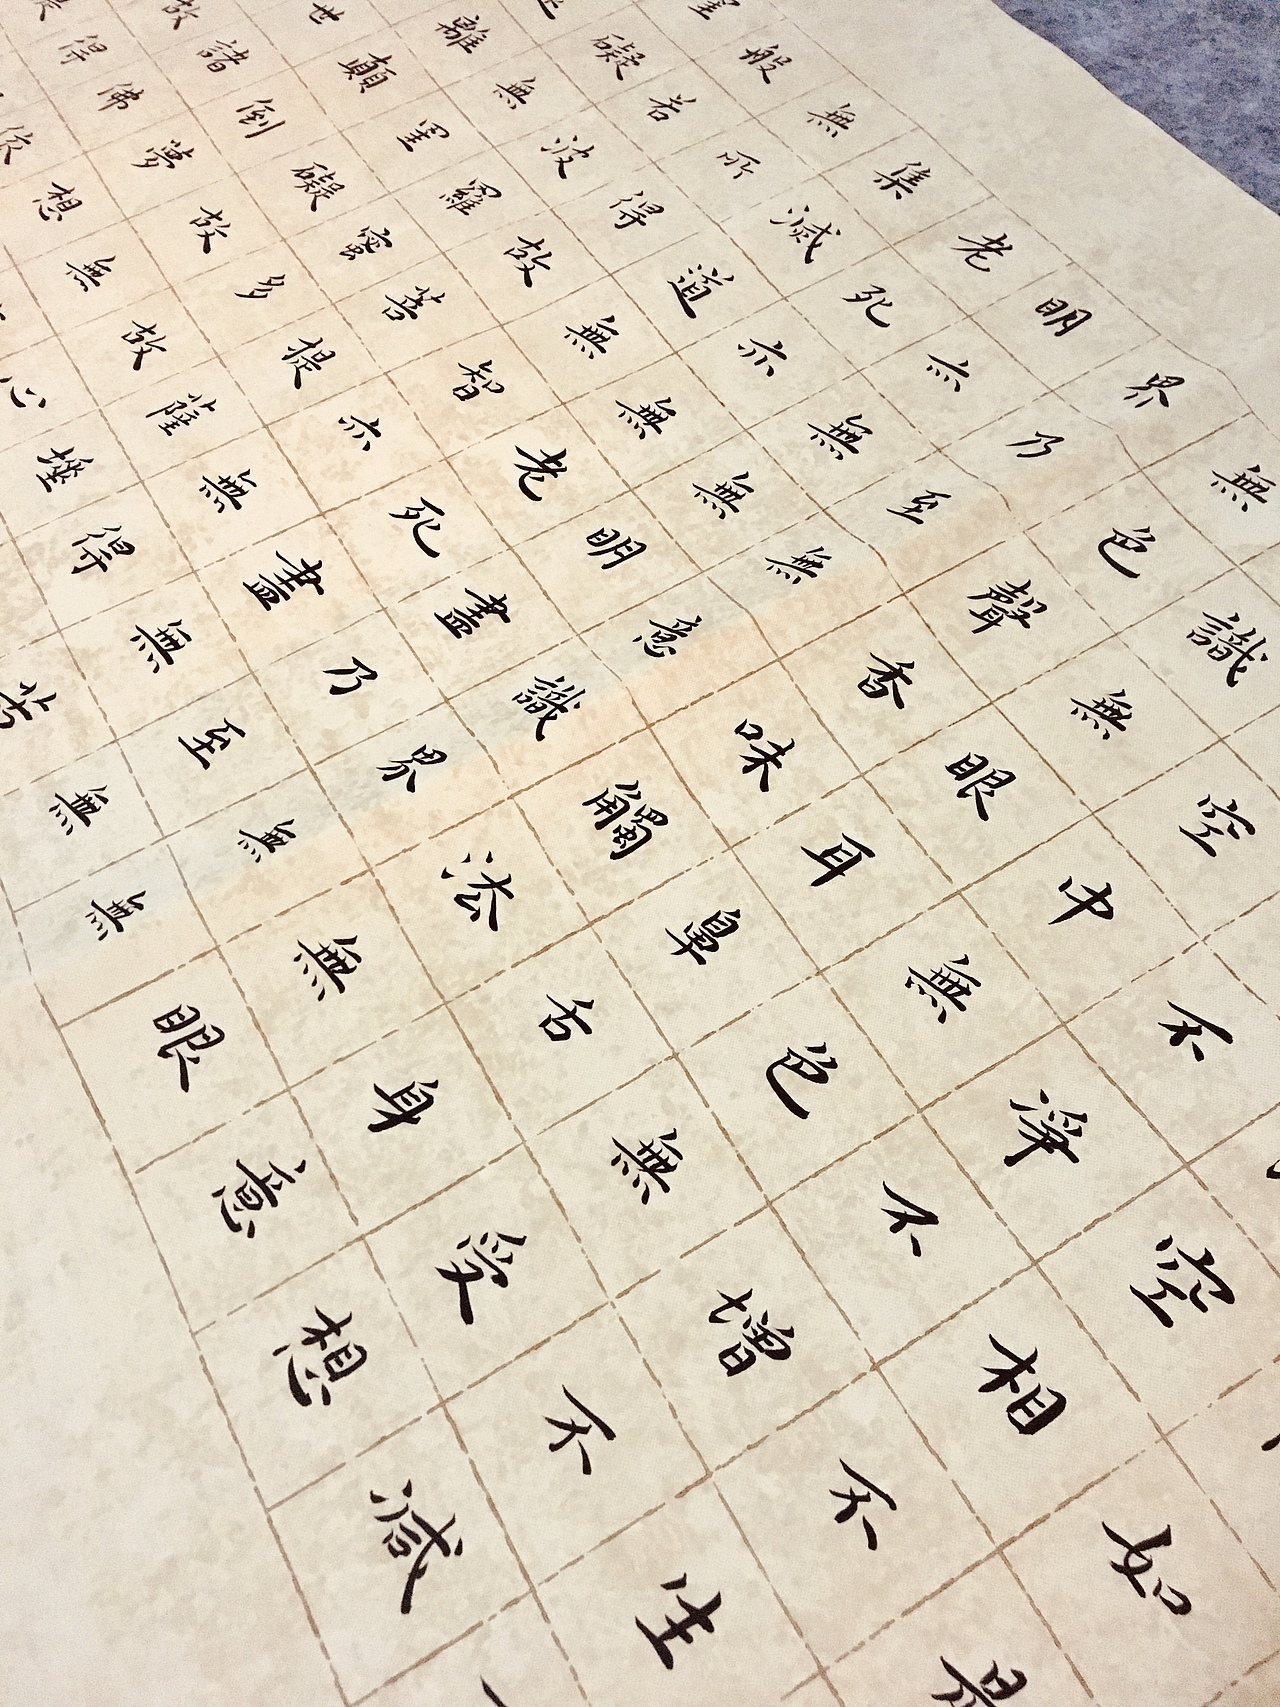 如是
空相不生
不淨不增不減
空中無色無受想
識無眼耳鼻舌身意
無色聲香味觸法無眼
界乃至無意識界無無
明亦無無明盡乃至無
老死亦無老死盡無苦
集滅道無智亦無得
無所得故菩提薩埵
般若波羅蜜多故心
罣礙無罣礙故無
離顛倒夢想
世諸佛依
故得